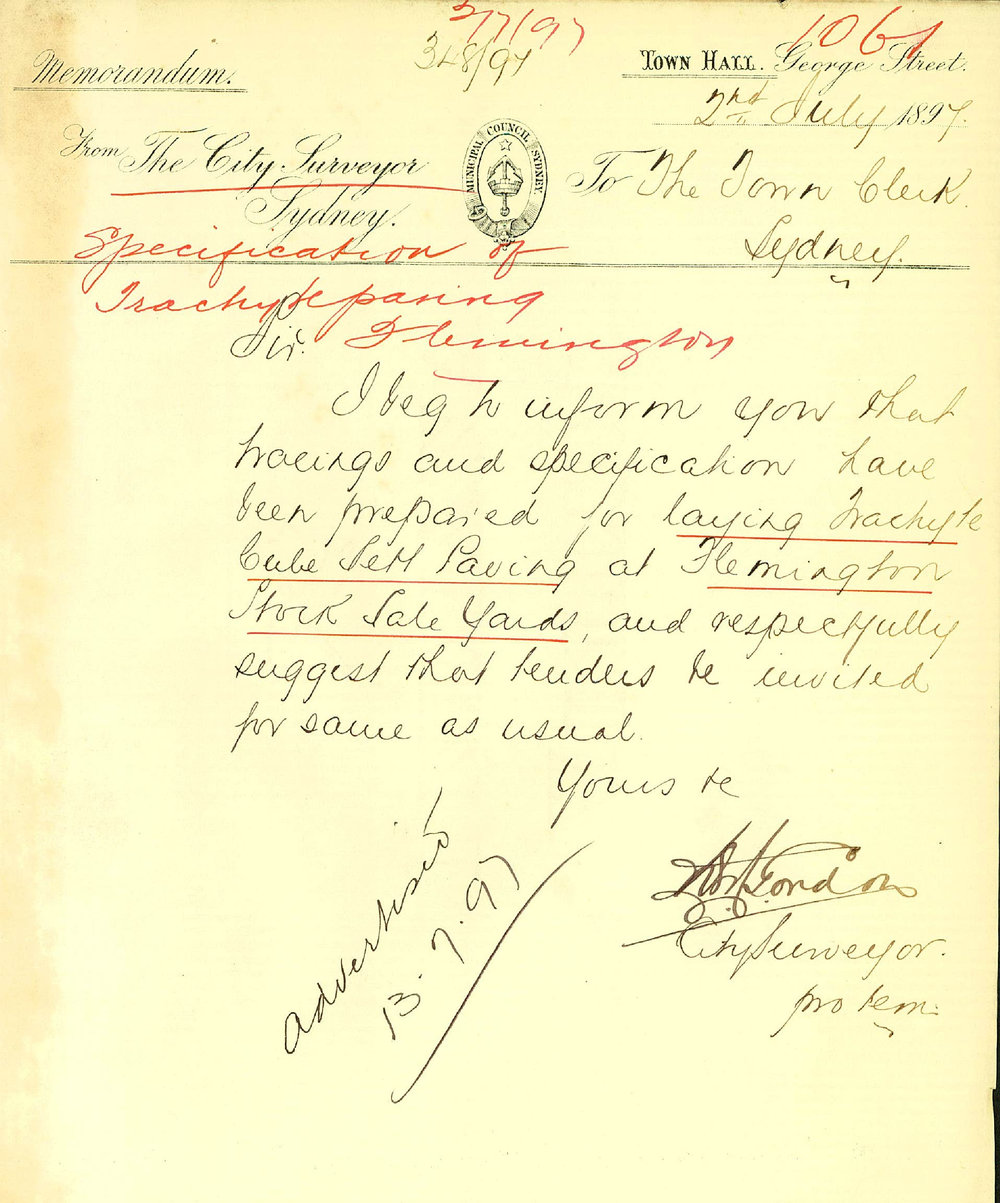 3/7/97
1061
348/97
Memorandum.
TOWN HALL. George Street.
2nd July 1897.
From The City Surveyor
Sydney.
MUNICIPAL COUNCIL SYDNEY
To The Town Clerk.
Sydney.
Specification of
Trachyte paving
Flemington
Sir.
I beg to inform you that
tracings and specification have
been prepared for laying Trachyte
Cube Sett Paving at Flemington
Stock Sale Yards, and respectfully
suggest that tenders be invited
for same as usual.
Yours &c
Gordon
City Surveyor.
pro tem.
advertised
13.7.97